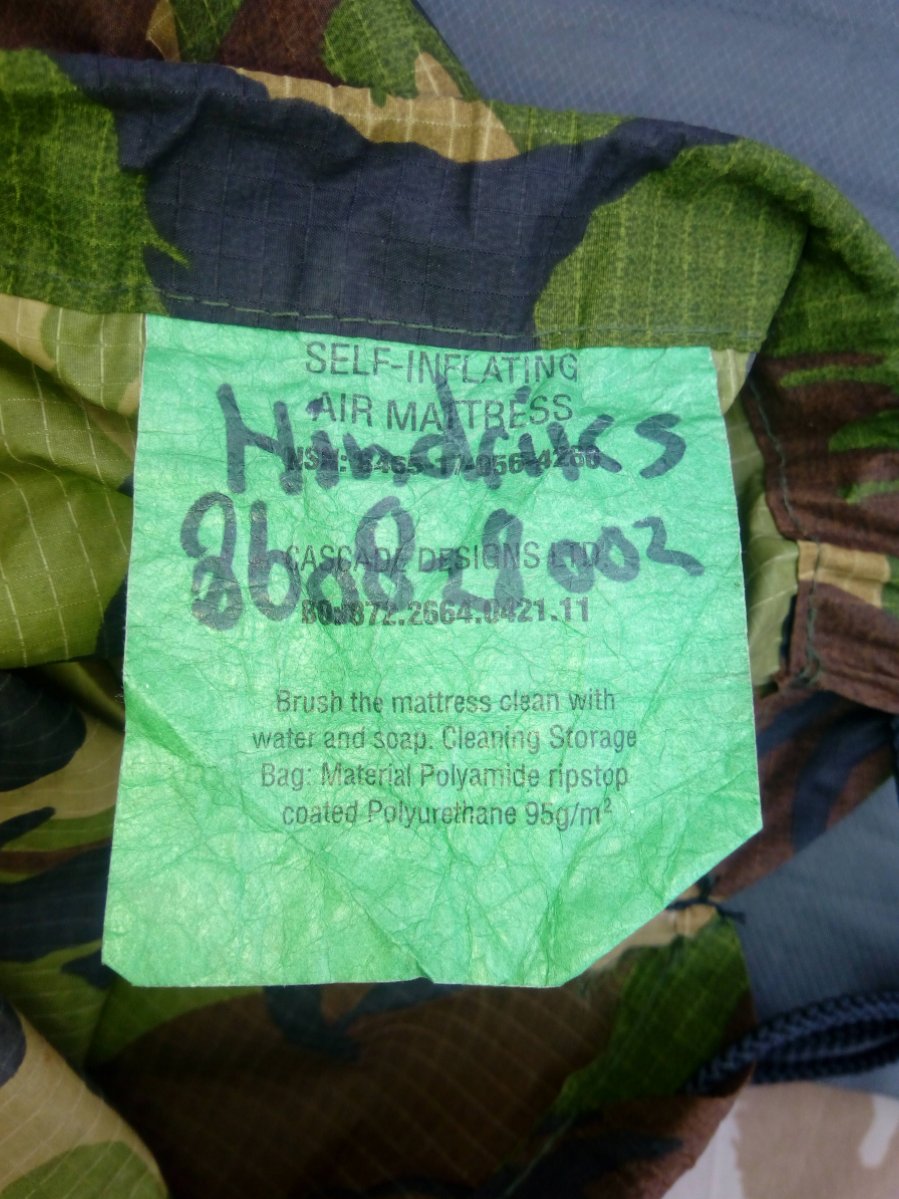 SELF-INFLATING
AIR MATTRESS
Hindriks
NSN: 8465-17-056-4266
CASCADE DESIGNS LTD
002
BO.872.2664.0421.11
Brush the mattress clean with
water and soap. Cleaning Storage
Bag: Material Polyamide ripstop
coated Polyurethane 95g/m²